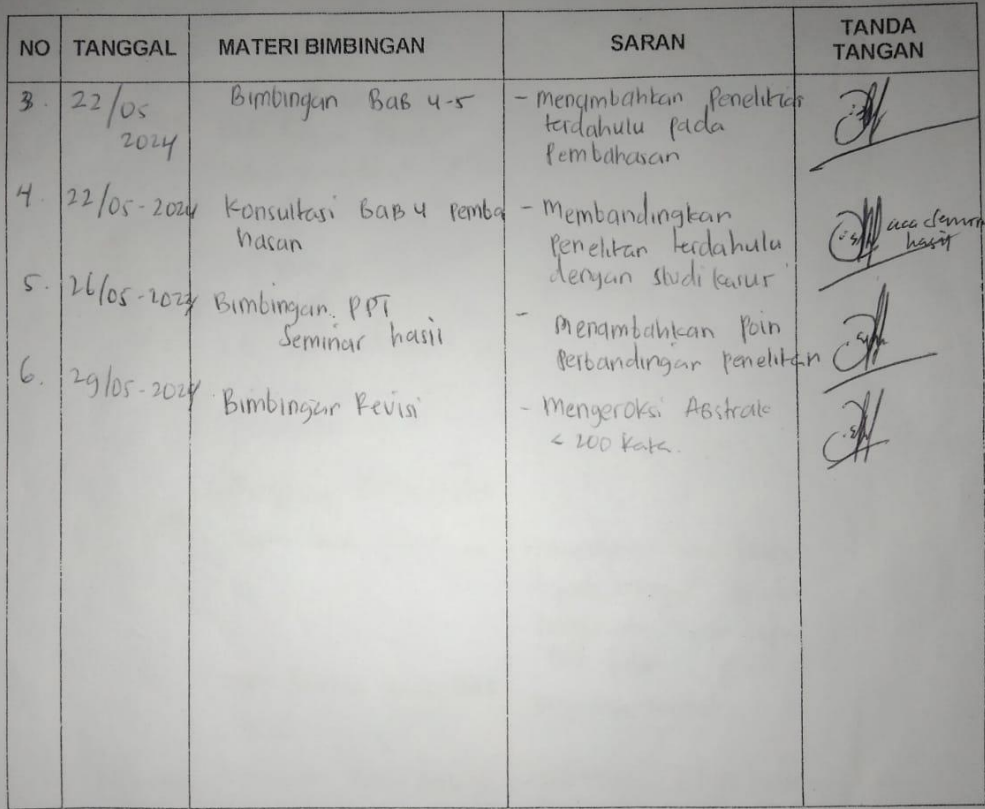 NO TANGGAL MATERI BIMBINGAN SARAN TANDA TANGAN
3. 22/05 2024 Bimbingan BAB 4-5 - menambahkan Penelitian
terdahulu pada
Pembahasan
4. 22/05-2024 Konsultasi BAB 4 pemba
hasan
- Membandingkan
Penelitan terdahulu
dengan studi kasus
acc seminar
hasil
5. 26/05-2024 Bimbingan PPT
Seminar hasil
- Menambahkan Poin
Perbandingan penelitan
6. 29/05-2024 Bimbingan Revisi
- Mengeroksi Abstrak
< 200 Kata.